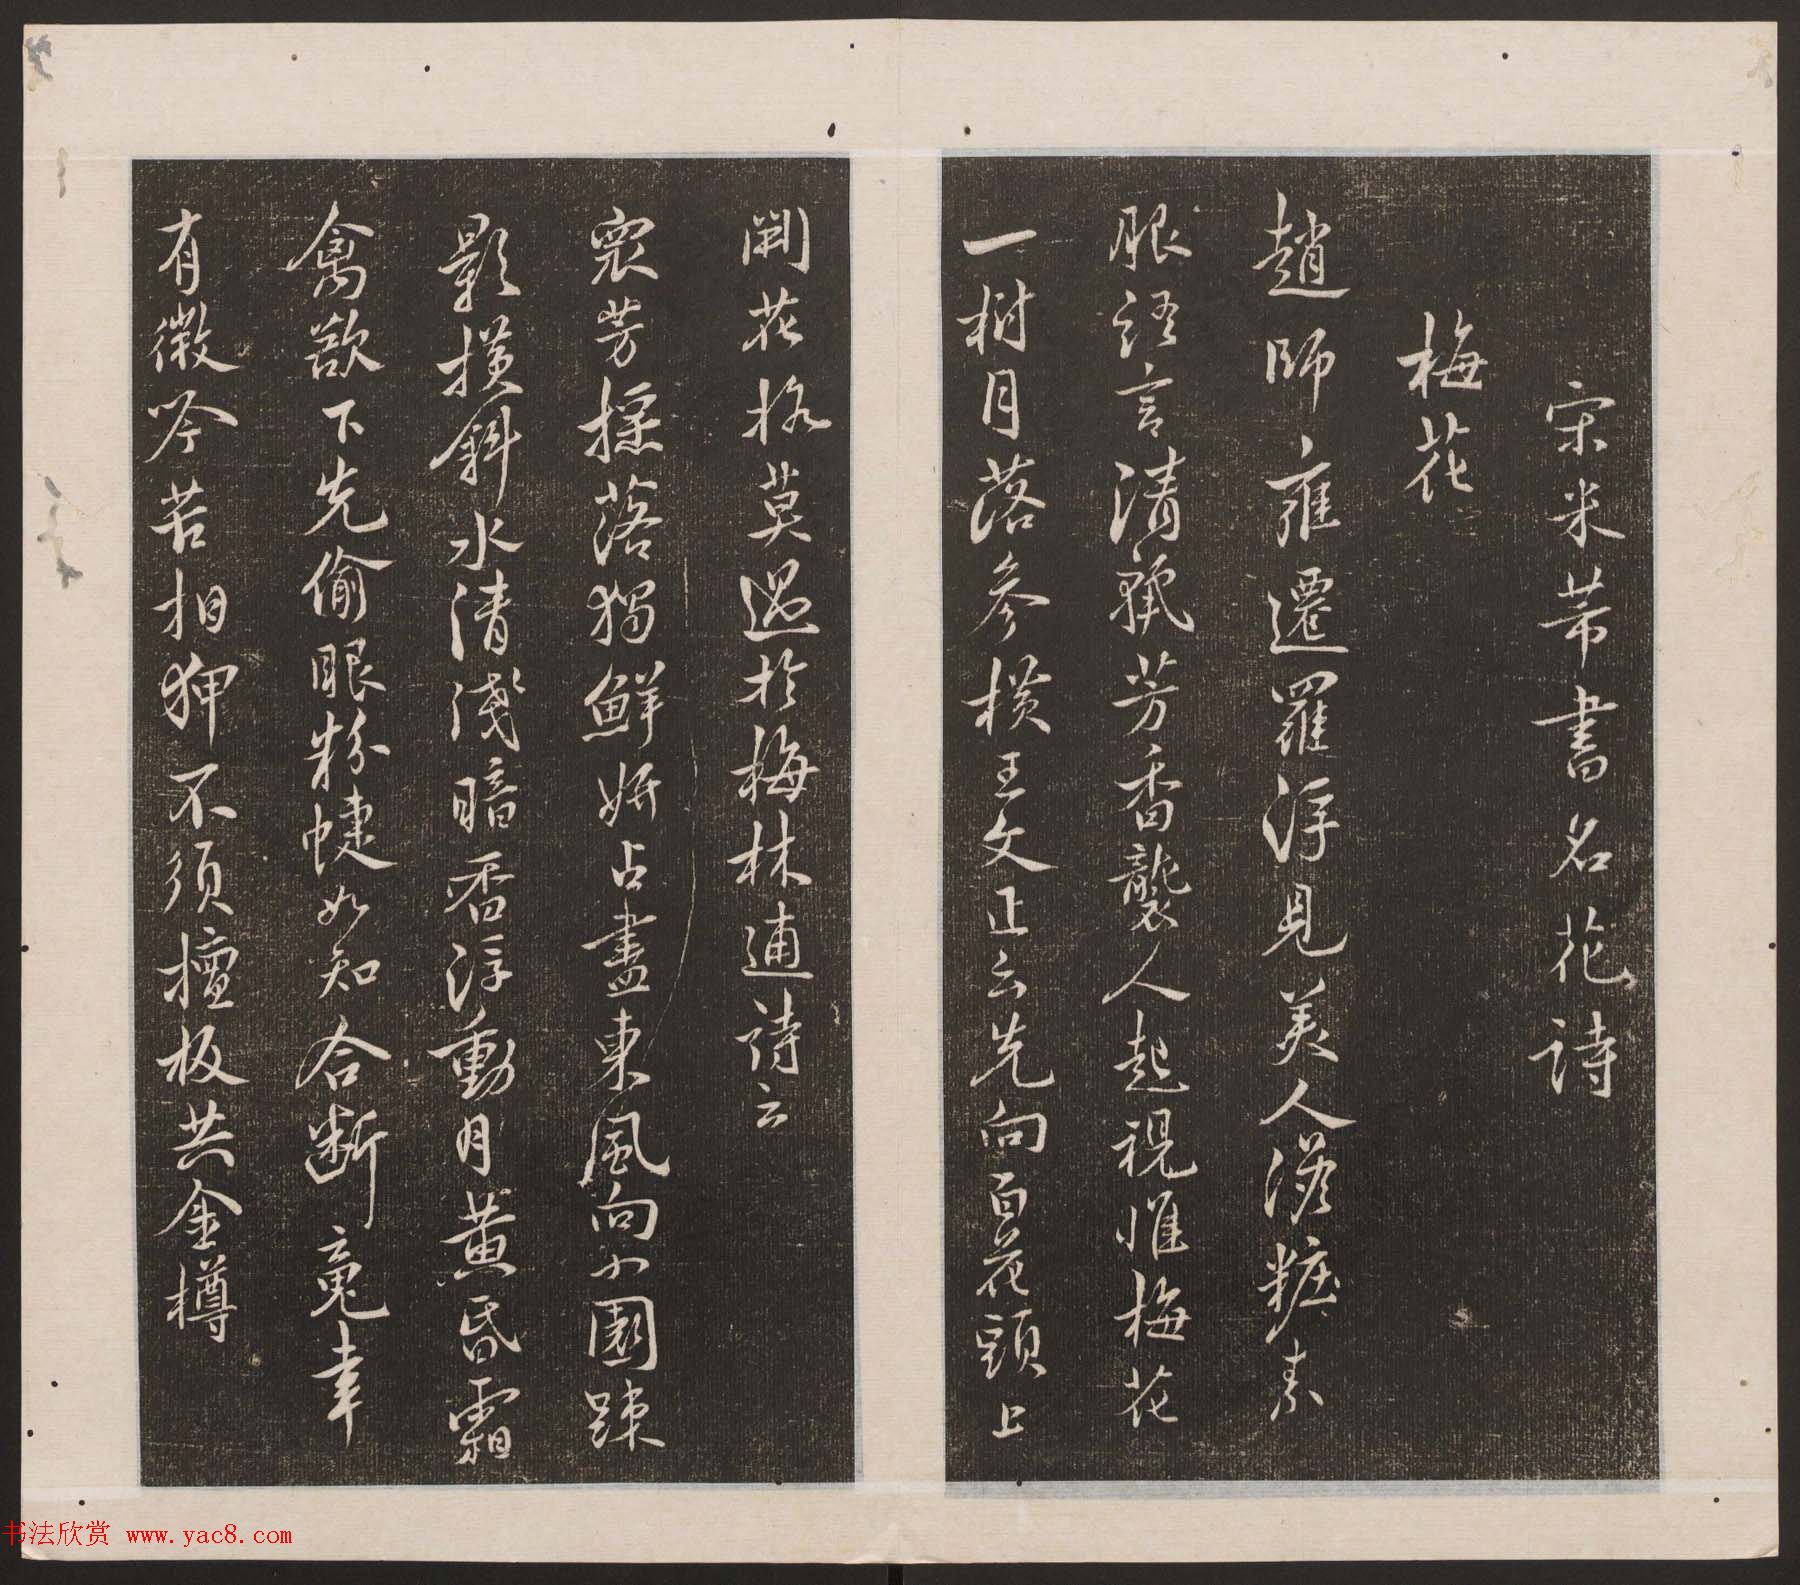 宋米芾書名花詩
梅花
趙師雍遷羅浮見美人澹粧素
服語言清麗芳香襲人起視惟梅花
一樹月落參横王文正云先向百花頭上
開花格莫過於梅林逋詩云
衆芳摇落獨鮮妍占盡東風向小園疎
影横斜水清淺暗香浮動月黄昏霜
禽欲下先偷眼粉蜨如知合斷䰟幸
有微吟苦相狎不須檀板共金樽
书法欣赏 www.yac8.com